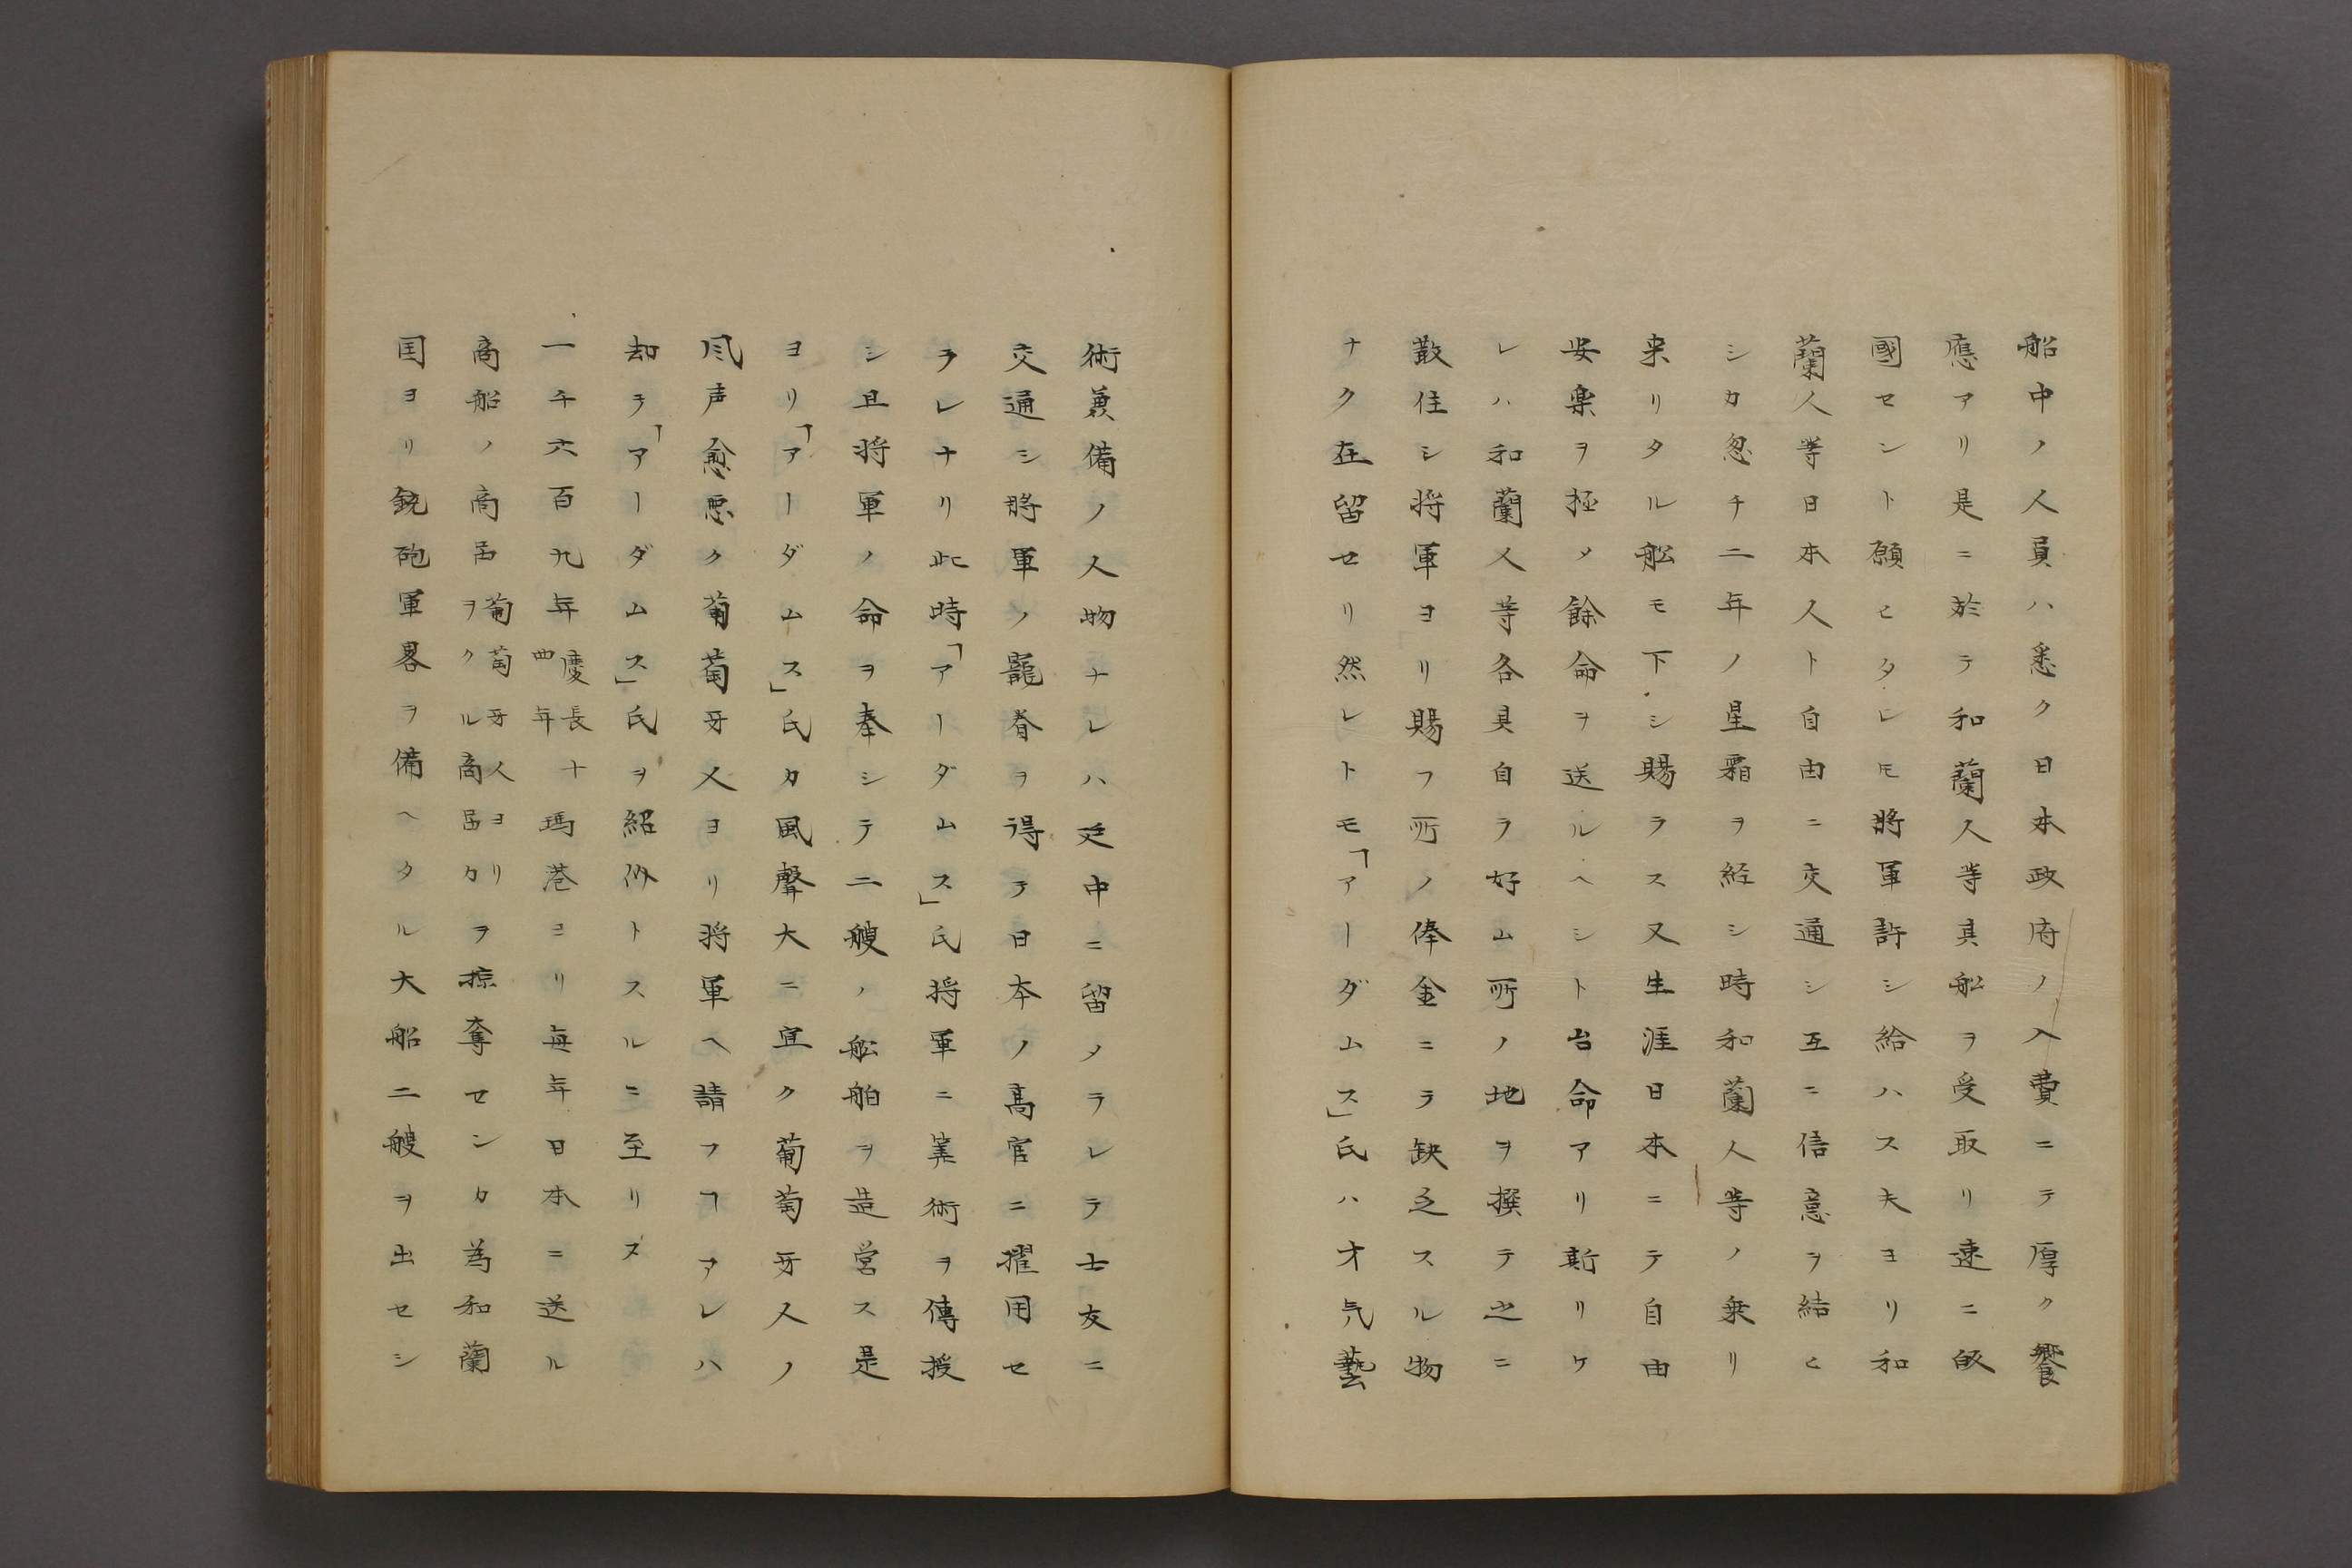 船中ノ人員ハ悉ク日本政府ノ入費ニテ厚ク饗
應アリ是ニ於テ和蘭人等其船ヲ受取リ速ニ皈
國セント願ヒタレ𪜈將軍許シ給ハス夫ヨリ和
蘭人等日本人ト自由ニ交通シ互ニ信意ヲ結ヒ
シカ忽チ二年ノ星霜ヲ経シ時和蘭人等ノ乗リ
来リタル舩モ下シ賜ラス又生涯日本ニテ自由
安楽ヲ極メ餘命ヲ送ルヘシト台命アリ斯リケ
レハ和蘭人等各其自ラ好ム所ノ地ヲ撰テ之ニ
散住シ将軍ヨリ賜フ所ノ俸金ニテ缺乏スル物
ナク在留セリ然レトモ「アーダムス」氏ハ才気藝
術兼備ノ人物ナレハ廷中ニ留メラレテ士友ニ
交通シ將軍ノ寵眷ヲ得テ日本ノ髙官ニ擢用セ
ラレナリ此時「アーダムス」氏将軍ニ筭術ヲ傳授
シ且将軍ノ命ヲ奉シテ二艘ノ舩舶ヲ造営ス是
ヨリ「アーダムス」氏カ風聲大ニ宜ク葡萄牙人ノ
風声愈悪ク葡萄牙人ヨリ将軍ヘ請フヿアレハ
却テ「アーダムス」氏ヲ紹介トスルニ至リヌ
一千六百九年慶長十四年瑪港ヨリ毎年日本ニ送ル
商船ノ商品葡萄牙人ヨリヲクル商品カヲ掠奪センカ為和蘭
国ヨリ銃砲軍畧ヲ備ヘタル大船二艘ヲ出セシ